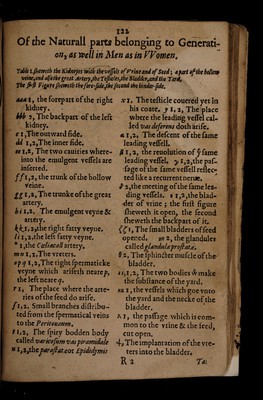 122
Of the Naturall parts belonging to Generati-
on, as well in Men as in VVomen.
Table 1. sheweth the Kidneyes with the vessells of Vrine and of Seed; a part of the hollow
veine, and also the great Artery, the Testicles, the Bladder, and the Yard.
The first Figure sheweth the fore-side, the second the hinder-side.
aaa 1, the forepart of the right
kidney.
bbb 2, The backpart of the left
kidney.
c 1, The outward side.
dd 1,2, The inner side.
ee 1,2, The two cauities where-
into the emulgent vessels are
inserted.
ff 1,2, the trunk of the hollow
veine.
gg 1,2, The trunke of the great
artery.
hi 1,2, The emulgent veyne &
artery.
kk 1,2, the right fatty veyne.
ll 1,2, the left fatty veyne.
* 1, the Cæliacall artery.
mm 1,2, The vreters.
opq 1,2, The right spermaticke
veyne which ariseth neare p,
the left neare q.
r 1, The place where the arte-
ries of the seed do arise.
s 1,2, Small branches distribu-
ted from the spermaticall veins
to the Peritonæum.
t 1,2, The spiry bodden body
called varicosum vas piramidale
u 1,2, the parastatæ or Epididymis
x 1. The testicle couered yet in
his coate, y 1, 2, The place
where the leading vessel cal-
led vas deferens doth arise.
α 1,2, The descent of the same
leading vessell.
β 1, 2, the reuolution of ye same
leading vessell. γ 1,2, the pas-
sage of the same vessell reflec-
ted like a recurrent nerue.
δ 2, the meeting of the same lea-
ding vessels. ε 1,2, the blad-
der of vrine; the first figure
sheweth it open, the second
sheweth the backpart of it.
ζζ 1, The small bladders of seed
opened. 2, the glandules
called glandulæ prostatæ.
θ 2, The sphincter muscle of the
bladder.
1,2, The two bodies which make
the substance of the yard.
1, The vessels which goe vnto
the yard and the necke of the
bladder.
λ 1, the passage which is com-
mon to the vrine & the seed,
cut open.
The implantation of the vre-
ters into the bladder.
R 2
Ta-